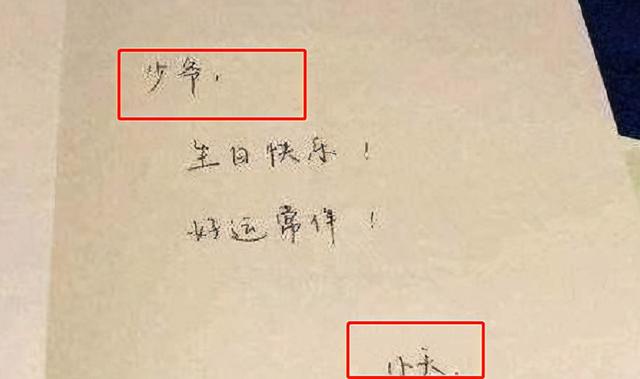 少爷，
生日快乐！
好运常伴！
小天.